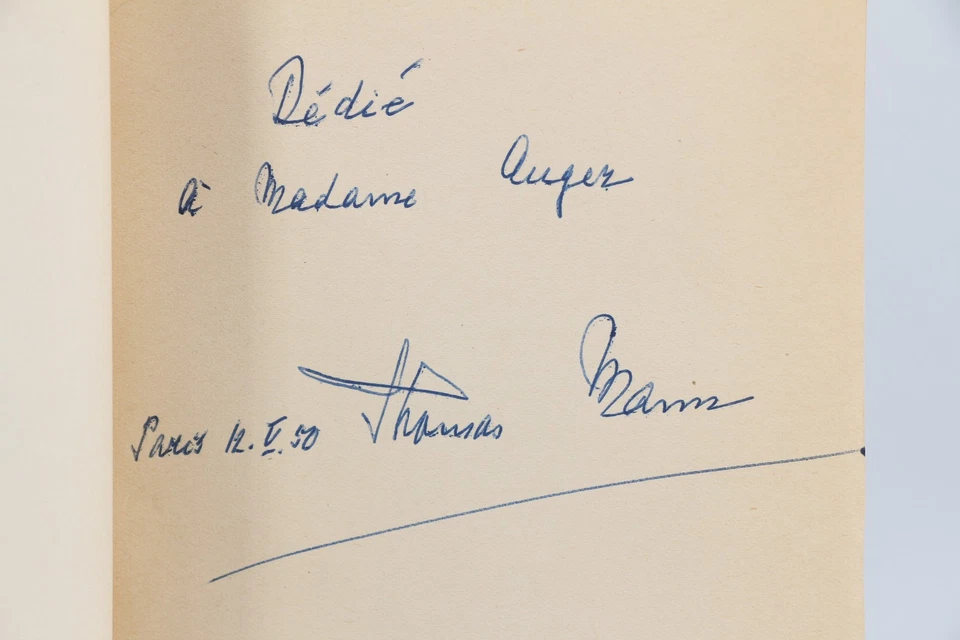 Dédié
à Madame Auger
Thomas Mann
Paris 12. V. 50